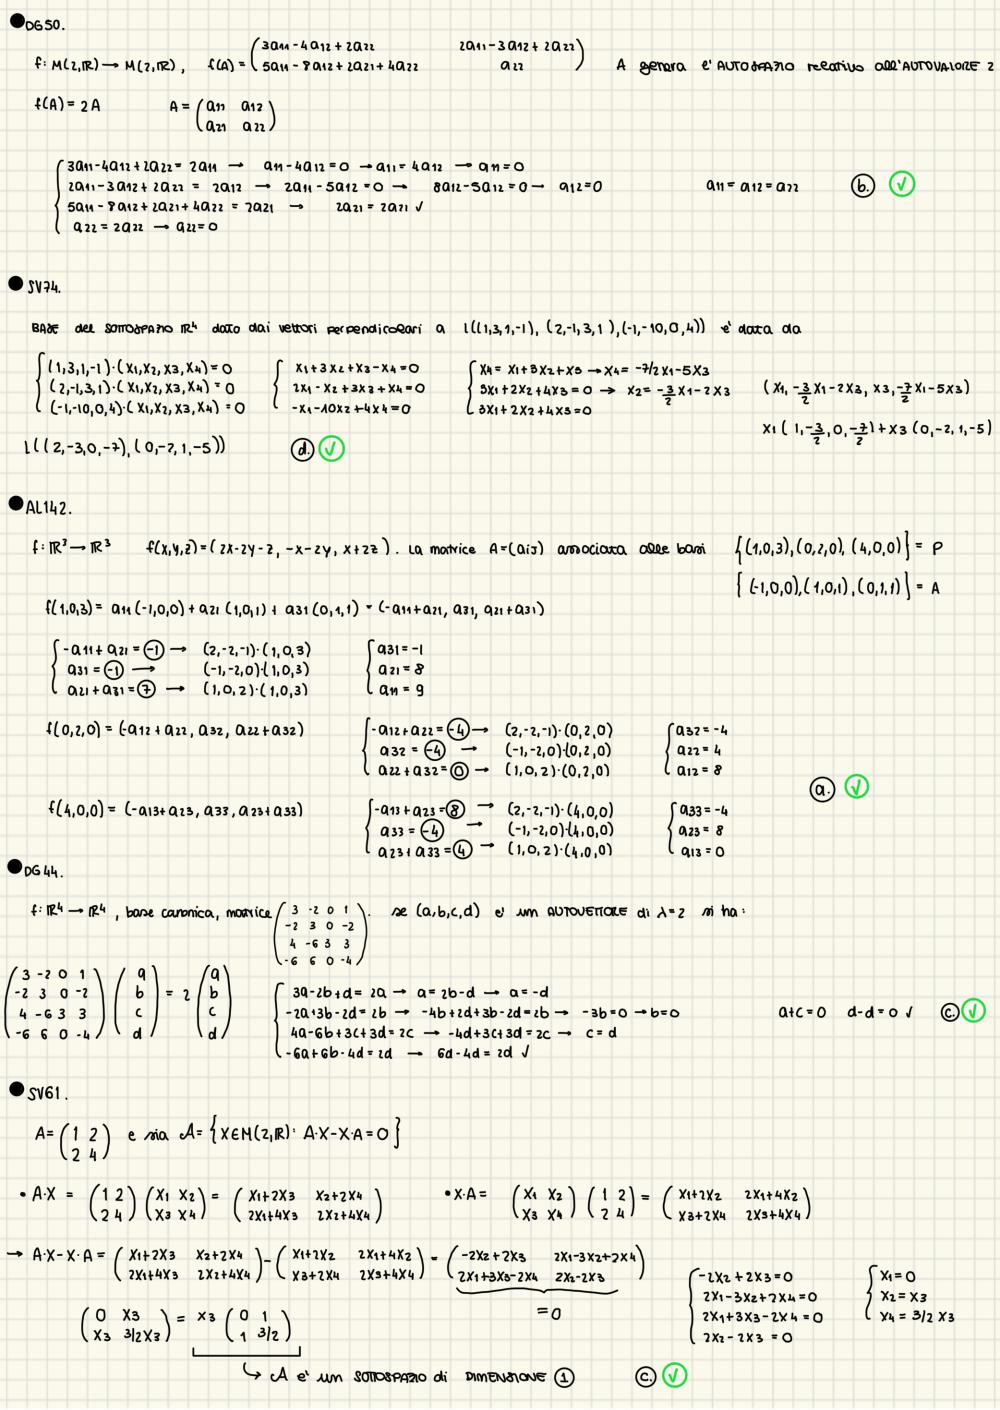 ● DG50.
f: M(2,ℝ) → M(2,ℝ) , f(A) = ( 3a11 - 4a12 + 2a22   2a11 - 3a12 + 2a22 ; 5a11 - 8a12 + 2a21 + 4a22   a22 )   A genera l'AUTOSPAZIO relativo all'AUTOVALORE 2
f(A) = 2A   A = ( a11 a12 ; a21 a22 )
3a11 - 4a12 + 2a22 = 2a11 → a11 - 4a12 = 0 → a11 = 4a12 → a11 = 0
2a11 - 3a12 + 2a22 = 2a12 → 2a11 - 5a12 = 0 → 8a12 - 5a12 = 0 → a12 = 0   a11 = a12 = a22   b. ✓
5a11 - 8a12 + 2a21 + 4a22 = 2a21 → 2a21 = 2a21 ✓
a22 = 2a22 → a22 = 0
● SV74.
BASE del SOTTOSPAZIO ℝ⁴ dato dai vettori perpendicolari a l((1,3,1,-1), (2,-1,3,1),(-1,-10,0,4)) e' data da
(1,3,1,-1)·(x1,x2,x3,x4) = 0   x1 + 3x2 + x3 - x4 = 0   x4 = x1 + 3x2 + x3 → x4 = -7/2x1 - 5x3
(2,-1,3,1)·(x1,x2,x3,x4) = 0   2x1 - x2 + 3x3 + x4 = 0   3x1 + 2x2 + 4x3 = 0 → x2 = -3/2 x1 - 2x3   (x1, -3/2 x1 - 2x3, x3, -7/2 x1 - 5x3)
(-1,-10,0,4)·(x1,x2,x3,x4) = 0   -x1 - 10x2 + 4x4 = 0   3x1 + 2x2 + 4x3 = 0
x1 ( 1, -3/2, 0, -7/2 ) + x3 (0,-2,1,-5)
l((2,-3,0,-7), (0,-2,1,-5))   d. ✓
● AL142.
f: ℝ³ → ℝ³   f(x,y,z) = ( 2x-2y-z, -x-2y, x+2z ) . La matrice A=(aij) associata alle basi   {(1,0,3),(0,2,0),(4,0,0)} = P
{(-1,0,0),(1,0,1),(0,1,1)} = A
f(1,0,3) = a11(-1,0,0) + a21(1,0,1) + a31(0,1,1) = (-a11+a21, a31, a21+a31)
-a11 + a21 = -1 → (2,-2,-1)·(1,0,3)   a31 = -1
a31 = -1 → (-1,-2,0)·(1,0,3)   a21 = 8
a21 + a31 = 7 → (1,0,2)·(1,0,3)   a11 = 9
f(0,2,0) = (-a12+a22, a32, a22+a32)   -a12 + a22 = -4 → (2,-2,-1)·(0,2,0)   a32 = -4
a32 = -4 → (-1,-2,0)·(0,2,0)   a22 = 4
a22 + a32 = 0 → (1,0,2)·(0,2,0)   a12 = 8
a. ✓
f(4,0,0) = (-a13+a23, a33, a23+a33)   -a13 + a23 = 8 → (2,-2,-1)·(4,0,0)   a33 = -4
a33 = -4 → (-1,-2,0)·(4,0,0)   a23 = 8
a23 + a33 = 4 → (1,0,2)·(4,0,0)   a13 = 0
● DG44.
f: ℝ⁴ → ℝ⁴ , base canonica, matrice ( 3 -2 0 1 ; -2 3 0 -2 ; 4 -6 3 3 ; -6 6 0 -4 ). se (a,b,c,d) e' un AUTOVETTORE di λ=2 si ha:
( 3 -2 0 1 ; -2 3 0 -2 ; 4 -6 3 3 ; -6 6 0 -4 ) ( a ; b ; c ; d ) = 2 ( a ; b ; c ; d )
3a - 2b + d = 2a → a = 2b - d → a = -d
-2a + 3b - 2d = 2b → -4b + 2d + 3b - 2d = 2b → -3b = 0 → b = 0   a + c = 0   d - d = 0 ✓   c. ✓
4a - 6b + 3c + 3d = 2c → -4d + 3c + 3d = 2c → c = d
-6a + 6b - 4d = 2d → 6d - 4d = 2d ✓
● SV61.
A = ( 1 2 ; 2 4 ) e sia 𝒜 = { X∈M(2,ℝ): A·X - X·A = 0 }
• A·X = ( 1 2 ; 2 4 ) ( x1 x2 ; x3 x4 ) = ( x1+2x3   x2+2x4 ; 2x1+4x3   2x2+4x4 )   • X·A = ( x1 x2 ; x3 x4 ) ( 1 2 ; 2 4 ) = ( x1+2x2   2x1+4x2 ; x3+2x4   2x3+4x4 )
→ A·X - X·A = ( x1+2x3   x2+2x4 ; 2x1+4x3   2x2+4x4 ) - ( x1+2x2   2x1+4x2 ; x3+2x4   2x3+4x4 ) = ( -2x2+2x3   2x1-3x2+2x4 ; 2x1+3x3-2x4   2x2-2x3 )
= 0
-2x2 + 2x3 = 0   x1 = 0
2x1 - 3x2 + 2x4 = 0   x2 = x3
2x1 + 3x3 - 2x4 = 0   x4 = 3/2 x3
2x2 - 2x3 = 0
( 0 x3 ; x3 3/2x3 ) = x3 ( 0 1 ; 1 3/2 )
↳ 𝒜 e' un SOTTOSPAZIO di DIMENSIONE 1   c. ✓